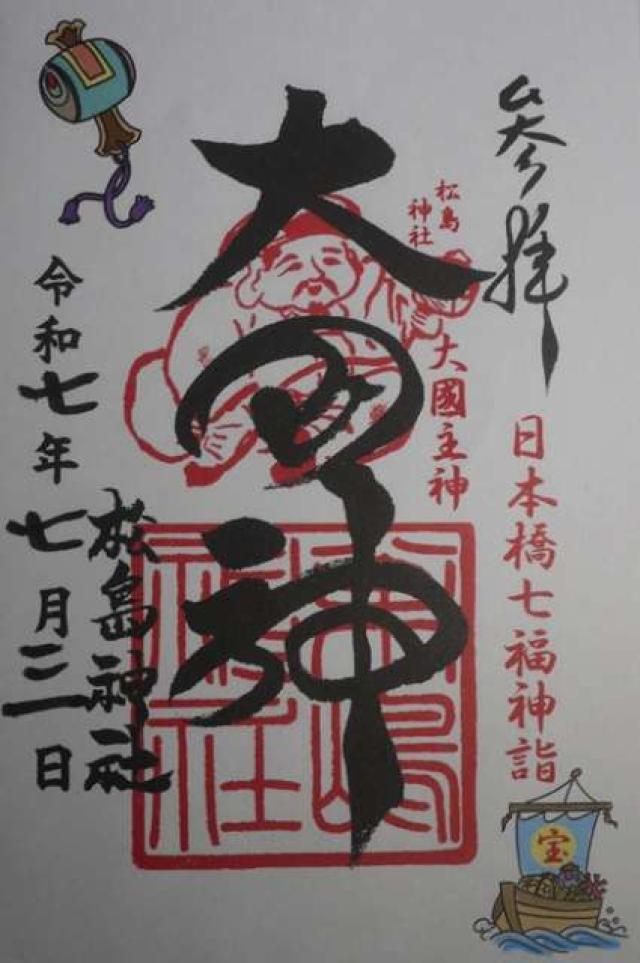 参拝
日本橋七福神詣
松島
神社
大國主神
大国神
松島神社
松島神社
令和七年七月三日
宝